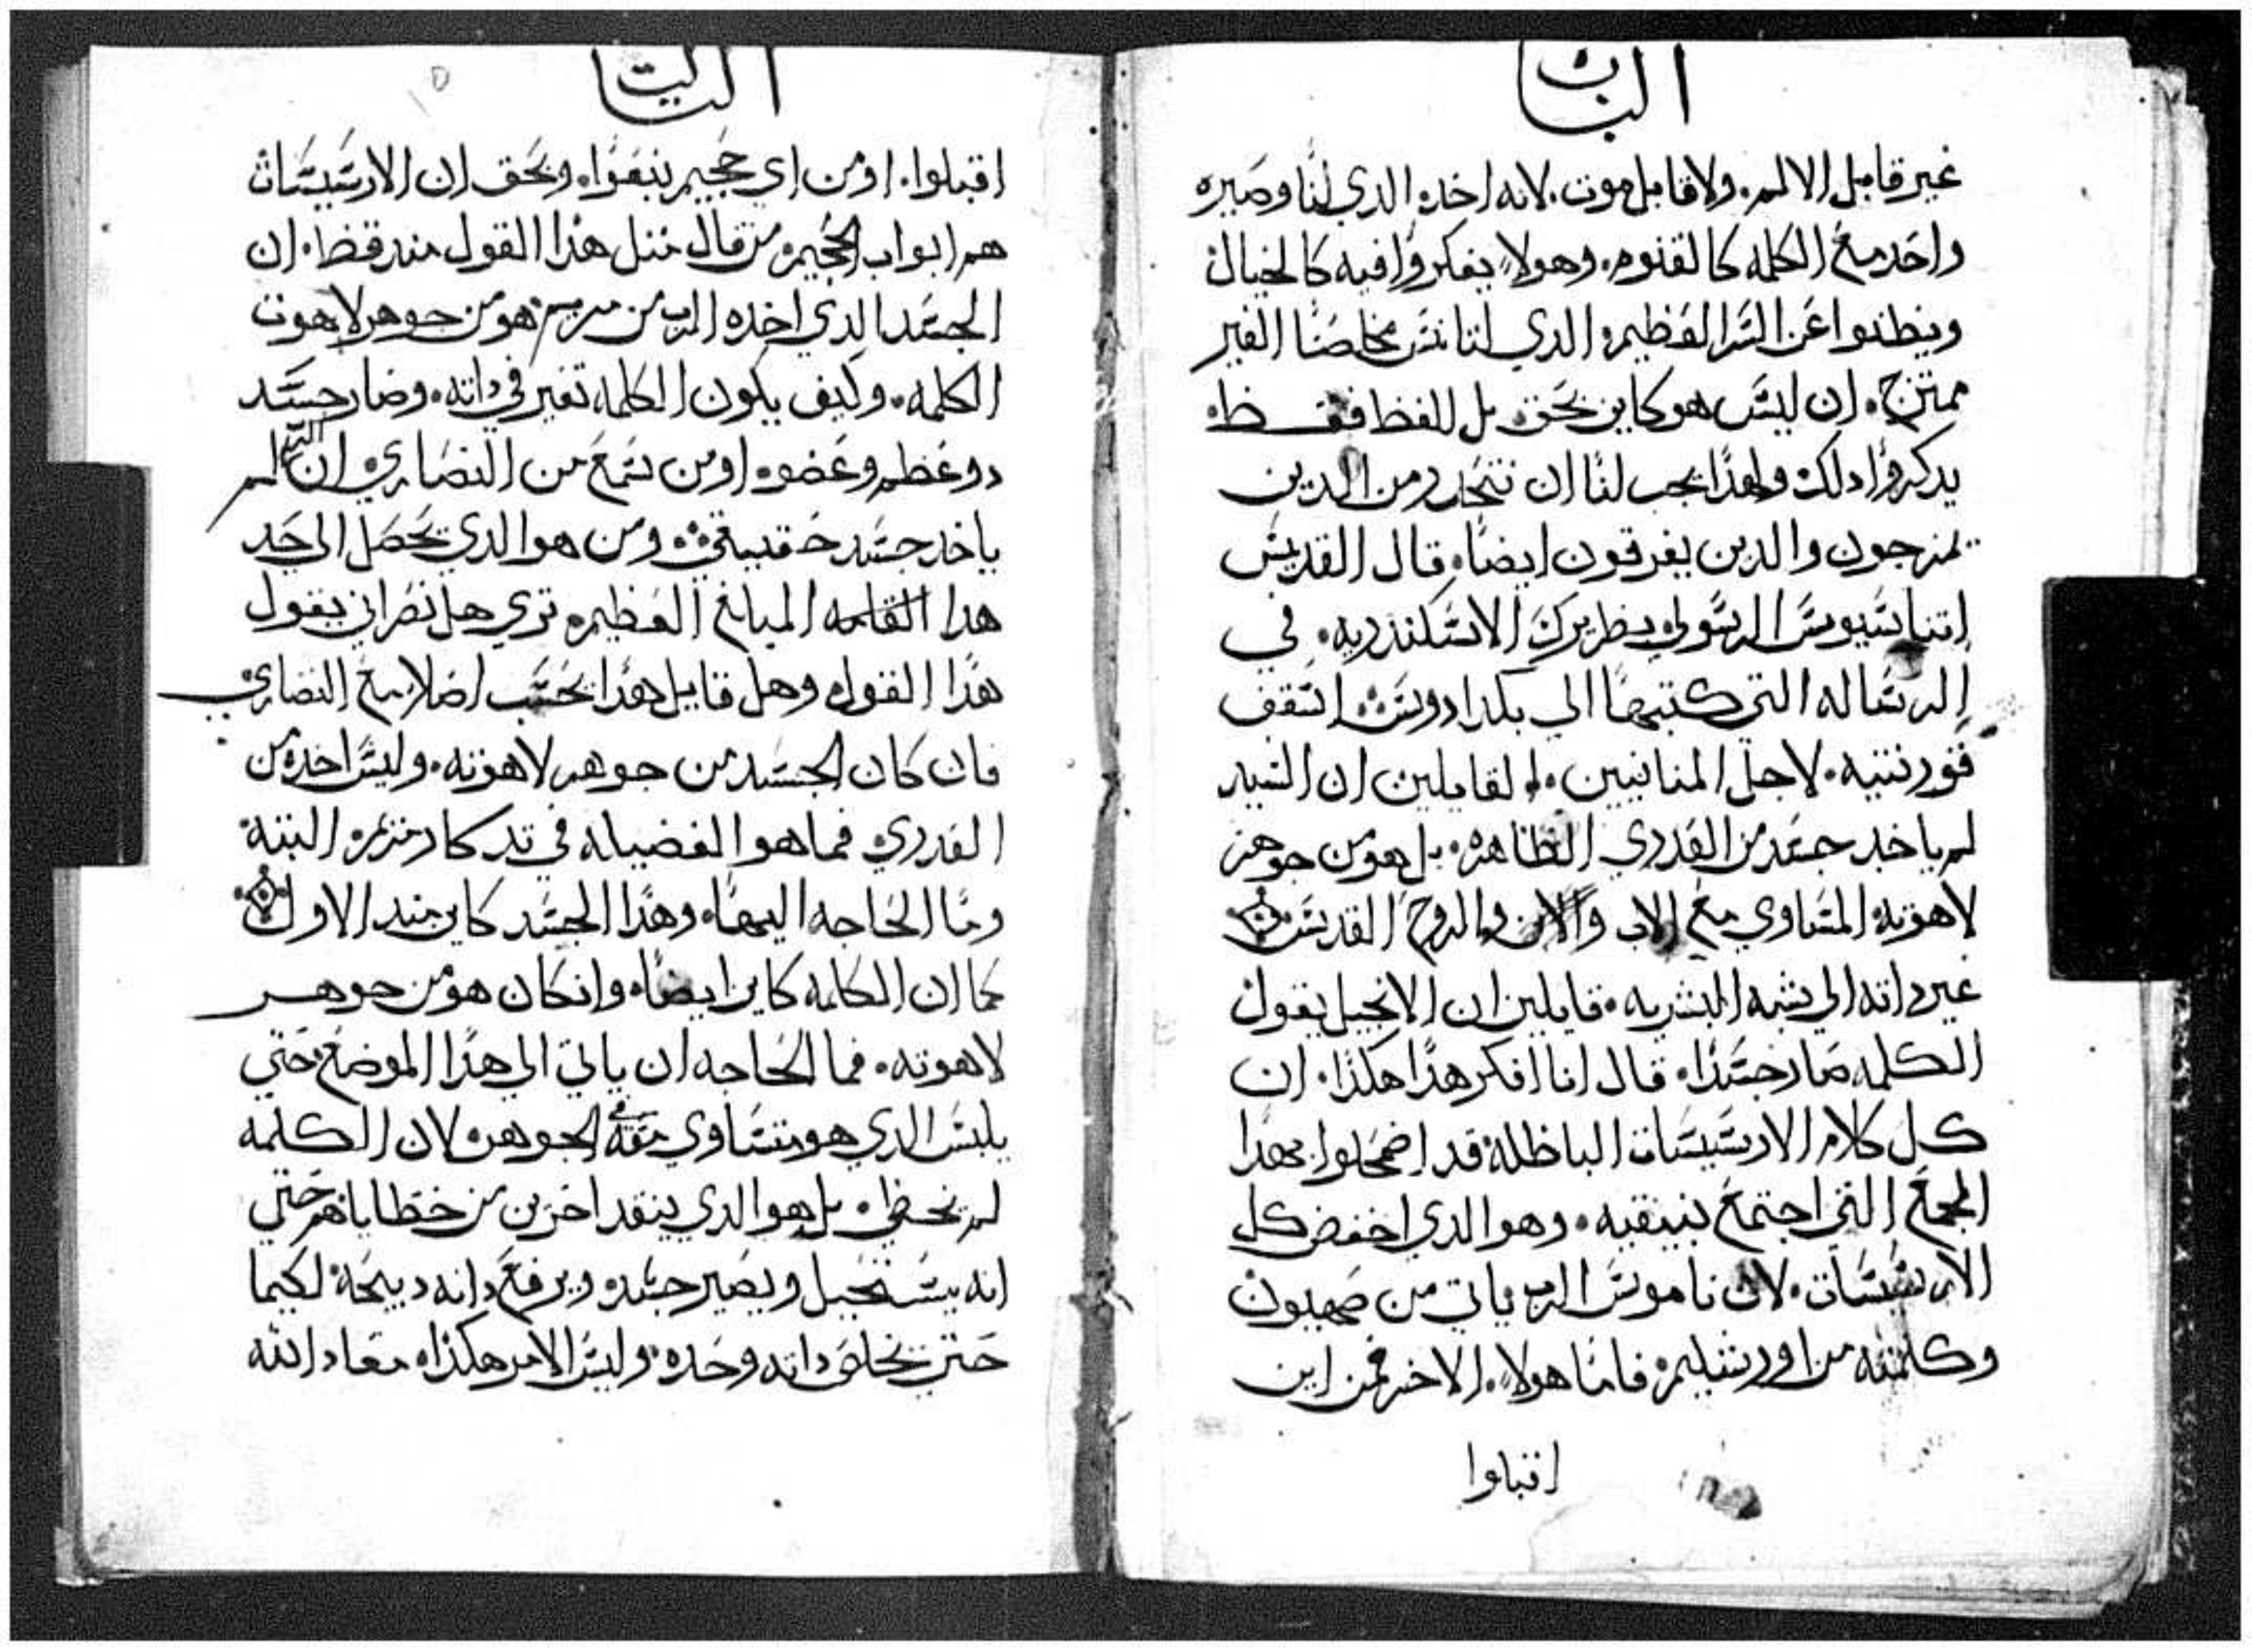 الباب
غير قابل الالم. ولا قابل موت. لانه اخد الدي لنا وصيره
واحد مع الكلمه كالقنوم. وهولاء يفكروا فيه كالخيال
وينطدوا عن السر العظيم الدي لتانس مخلصنا الغير
ممتزج. ان ليس هو كاين بحق بل للفظ فقط.
يدكروا دلك ولهدا يجب لنا ان نتحد رمن الدين
يمزجون والدين يفرقون ايضا. قال القديس
اتناسيوس الرسولي بطريرك الاسكندريه. في
الرساله التي كتبها الي بكدادوس اسقف
قورنتيه. لاجل المنانيين. القايلين ان السيد
لم ياخد جسد من العدري الطاهره. بل هو من جوهر
لاهوته المساوي مع الاب والابن والروح القدس
غير داته الي شبه البشريه. قايلين ان الانجيل يقول
الكلمه صار جسدا. قال انا افكر هدا هكدا. ان
كل كلام الارسيسات الباطله قد اضمحلوا بهدا
المجمع التي اجتمع بنيقيه. وهو الدي اخفض كل
الارسيسات. لان ناموس الرب ياتي من صهيون
وكلمته من اورشليم فاما هولاء. الاخر فمن اين
اقبلوا
التالت
اقبلوا. او من اي جحيم ينبعوا. وبحق ان الارسيسات
هم ابواب الجحيم. من قال متل هدا القول مند قط. ان
الجسد الدي اخده الرب من مريم هو من جوهر لاهوت
الكلمه. وكيف يكون الكلمه تغير في داته. وصار جسد
دو عظم وعضو. او من سمع من النصاري. ان الرب لم
ياخد جسد حقيقي. ومن هو الدي يحصل الي حد
هدا القامه المبالغ العظيم. تري هل نصراني يقول
هدا القول وهل قايل هدا يحسب اصلا مع النصاري
فان كان الجسد من جوهر لاهوته. وليس اخده من
العدري فما هو الفضيله في تدكار مريم البته
وما الحاجه اليها. وهدا الجسد كاين مند الاول
كما ان الكلمه كاين ايضا. وان كان هو من جوهر
لاهوته. فما الحاجه ان ياتي الي هدا الموضع حتي
يلبس الدي هو متساوي معه في الجوهر. لان الكلمه
لم يخطي. بل هو الدي ينقد اخرين من خطاياهم حتي
انه يستحيل ويصير جسد. ويرفع داته دبيحة لكيما
حتي يخلص داته وحده. وليس الامر هكدا. معاد الله